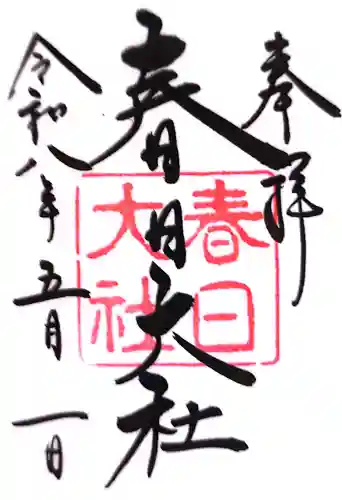 奉拝
春日大社
春日大社
令和八年五月一日